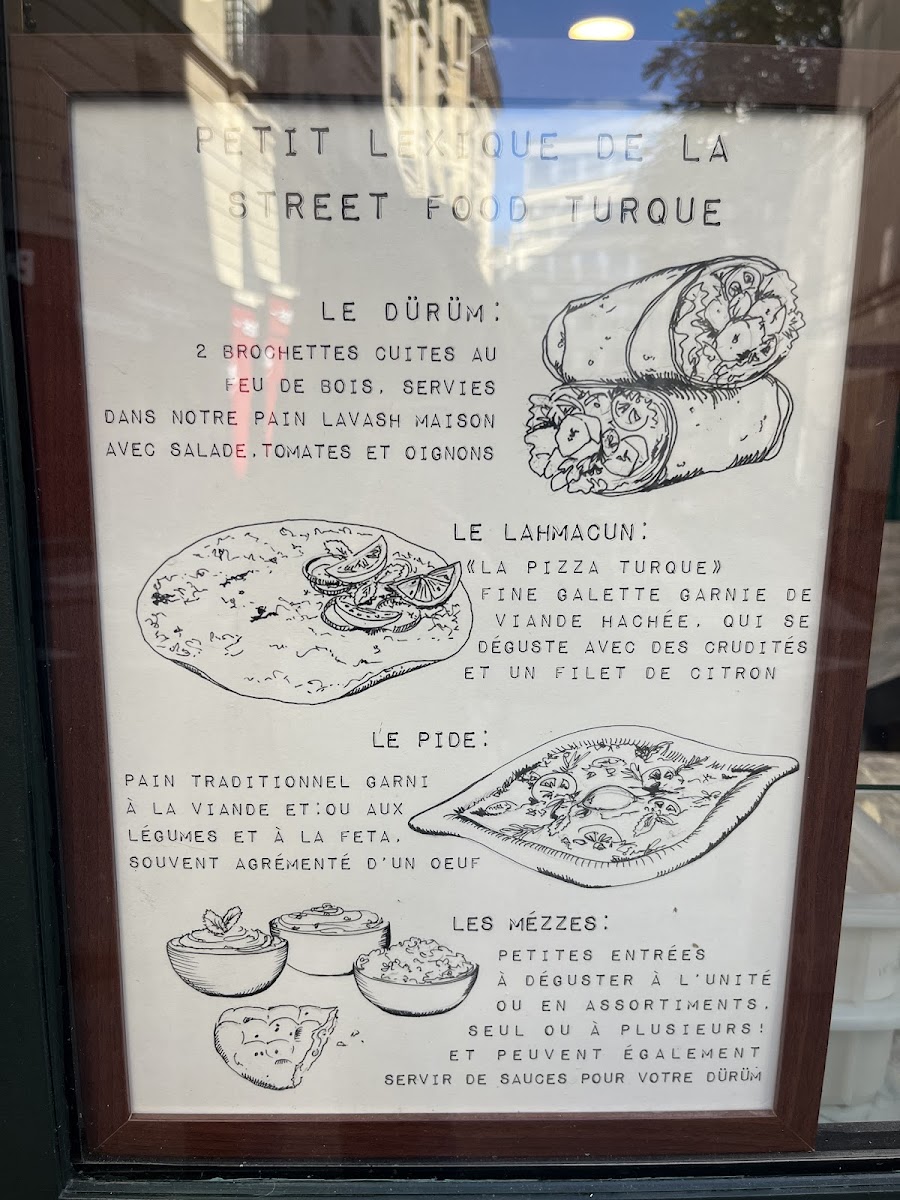 PETIT LEXIQUE DE LA
STREET FOOD TURQUE
LE DÜRÜM:
2 BROCHETTES CUITES AU
FEU DE BOIS, SERVIES
DANS NOTRE PAIN LAVASH MAISON
AVEC SALADE, TOMATES ET OIGNONS
LE LAHMACUN:
«LA PIZZA TURQUE»
FINE GALETTE GARNIE DE
VIANDE HACHÉE, QUI SE
DÉGUSTE AVEC DES CRUDITÉS
ET UN FILET DE CITRON
LE PIDE:
PAIN TRADITIONNEL GARNI
À LA VIANDE ET:OU AUX
LÉGUMES ET À LA FETA,
SOUVENT AGRÉMENTÉ D'UN OEUF
LES MÉZZES:
PETITES ENTRÉES
À DÉGUSTER À L'UNITÉ
OU EN ASSORTIMENTS,
SEUL OU À PLUSIEURS!
ET PEUVENT ÉGALEMENT
SERVIR DE SAUCES POUR VOTRE DÜRÜM